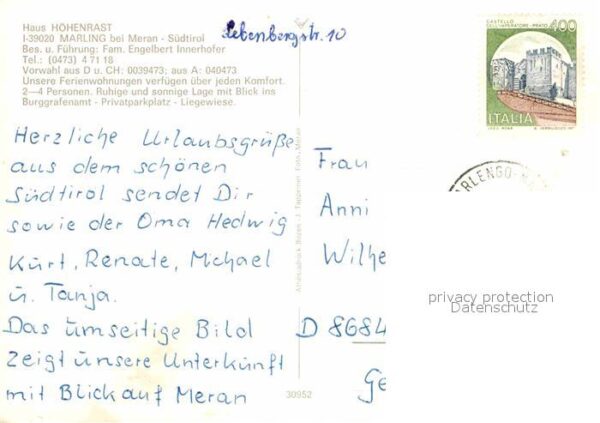 Haus HÖHENRAST
I-39020 MARLING bei Meran - Südtirol
Bes. u. Führung: Fam. Engelbert Innerhofer
Tel.: (0473) 4 71 18
Vorwahl aus D u. CH: 0039473; aus A: 040473
Unsere Ferienwohnungen verfügen über jeden Komfort.
2—4 Personen. Ruhige und sonnige Lage mit Blick ins
Burggrafenamt - Privatparkplatz - Liegewiese.
Lebenbergstr. 10
Herzliche Urlaubsgrüße
aus dem schönen
Südtirol sendet Dir
sowie der Oma Hedwig
Kurt, Renate, Michael
u. Tanja.
Das umseitige Bild
zeigt unsere Unterkunft
mit Blick auf Meran
Athesiadruck Bozen - J. Tappeiner, Foto, Meran
30952
CASTELLO
DELL'IMPERATORE - PRATO
400
ITALIA
I.P.Z.S. ROMA
ARLENGO
Frau
Anni
Wilhe
D 8684
Ge
privacy protection
Datenschutz